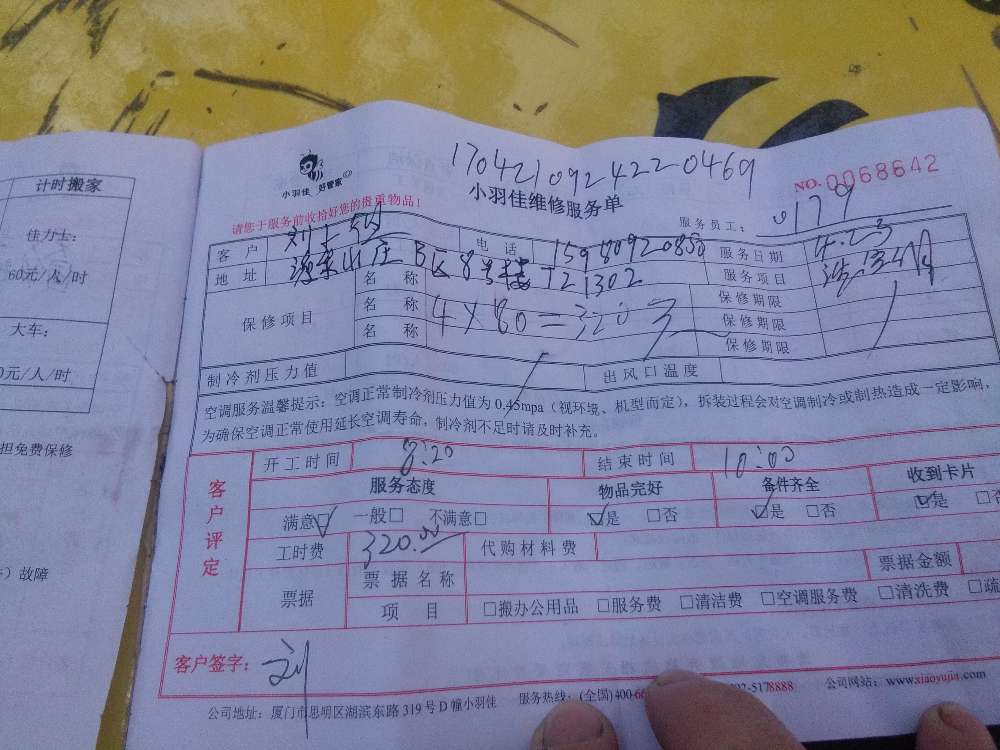 计时搬家
佳力士:
60元/人/时
大车:
0元/人/时
担免费保修
故障
小羽佳 好管家
1704210924220469
NO. 0068642
小羽佳维修服务单
请您于服务前收拾好您的贵重物品!
服务员工: 179
客户 刘 电话 服务日期 4.23
地址 山庄B区8号楼T2 1302 服务项目
保修项目
名称 保修期限
名称 4×80=320 保修期限
名称 保修期限
制冷剂压力值 出风口温度
空调服务温馨提示:空调正常制冷剂压力值为0.45mpa(视环境、机型而定),拆装过程会对空调制冷或制热造成一定影响,
为确保空调正常使用延长空调寿命,制冷剂不足时请及时补充。
客户评定
开工时间 8:20 结束时间 10:00
服务态度 物品完好 备件齐全 收到卡片
满意☑ 一般□ 不满意□ ☑是 □否 ☑是 □否 ☑是 □否
工时费 320.00 代购材料费
票据 票据名称 票据金额
项目 □搬办公用品 □服务费 □清洁费 □空调服务费 □清洗费 □疏
客户签字: 刘
公司地址:厦门市思明区湖滨东路319号D幢小羽佳 服务热线:(全国)400-66 92-5178888 公司网站:www.xiaoyujia.com